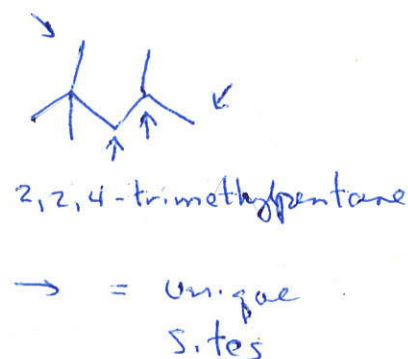 2,2,4-trimethylpentane
→ = unique
sites